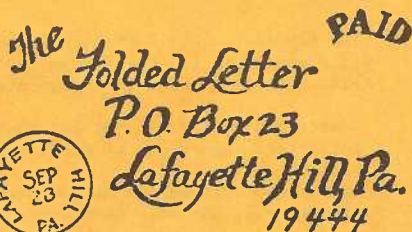 The
PAID
Folded Letter
P.O. Box 23
Lafayette Hill, Pa.
19444
LAFAYETTE HILL
SEP
23
PA.